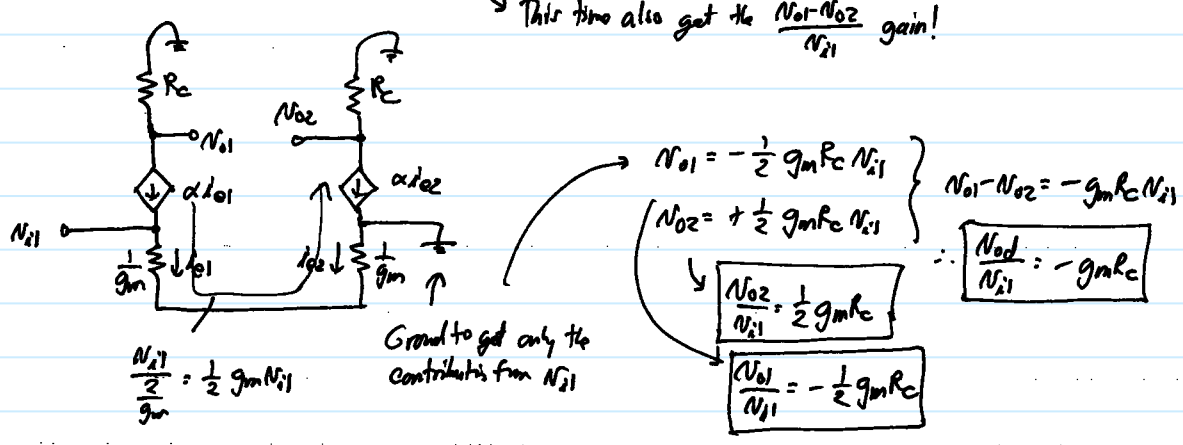 ↳ This time also get the (No1-No2)/Ni1 gain!
Rc
Rc
No1
No2
αie1
αie2
Ni1
1/gm
ie1
ie2
1/gm
(Ni1)/(2/gm) = 1/2 gm Ni1
Ground to get only the
contribution from Ni1
No1 = - 1/2 gm Rc Ni1
No2 = + 1/2 gm Rc Ni1
No1 - No2 = - gm Rc Ni1
∴ Nod/Ni1 = - gm Rc
No2/Ni1 = 1/2 gm Rc
No1/Ni1 = - 1/2 gm Rc